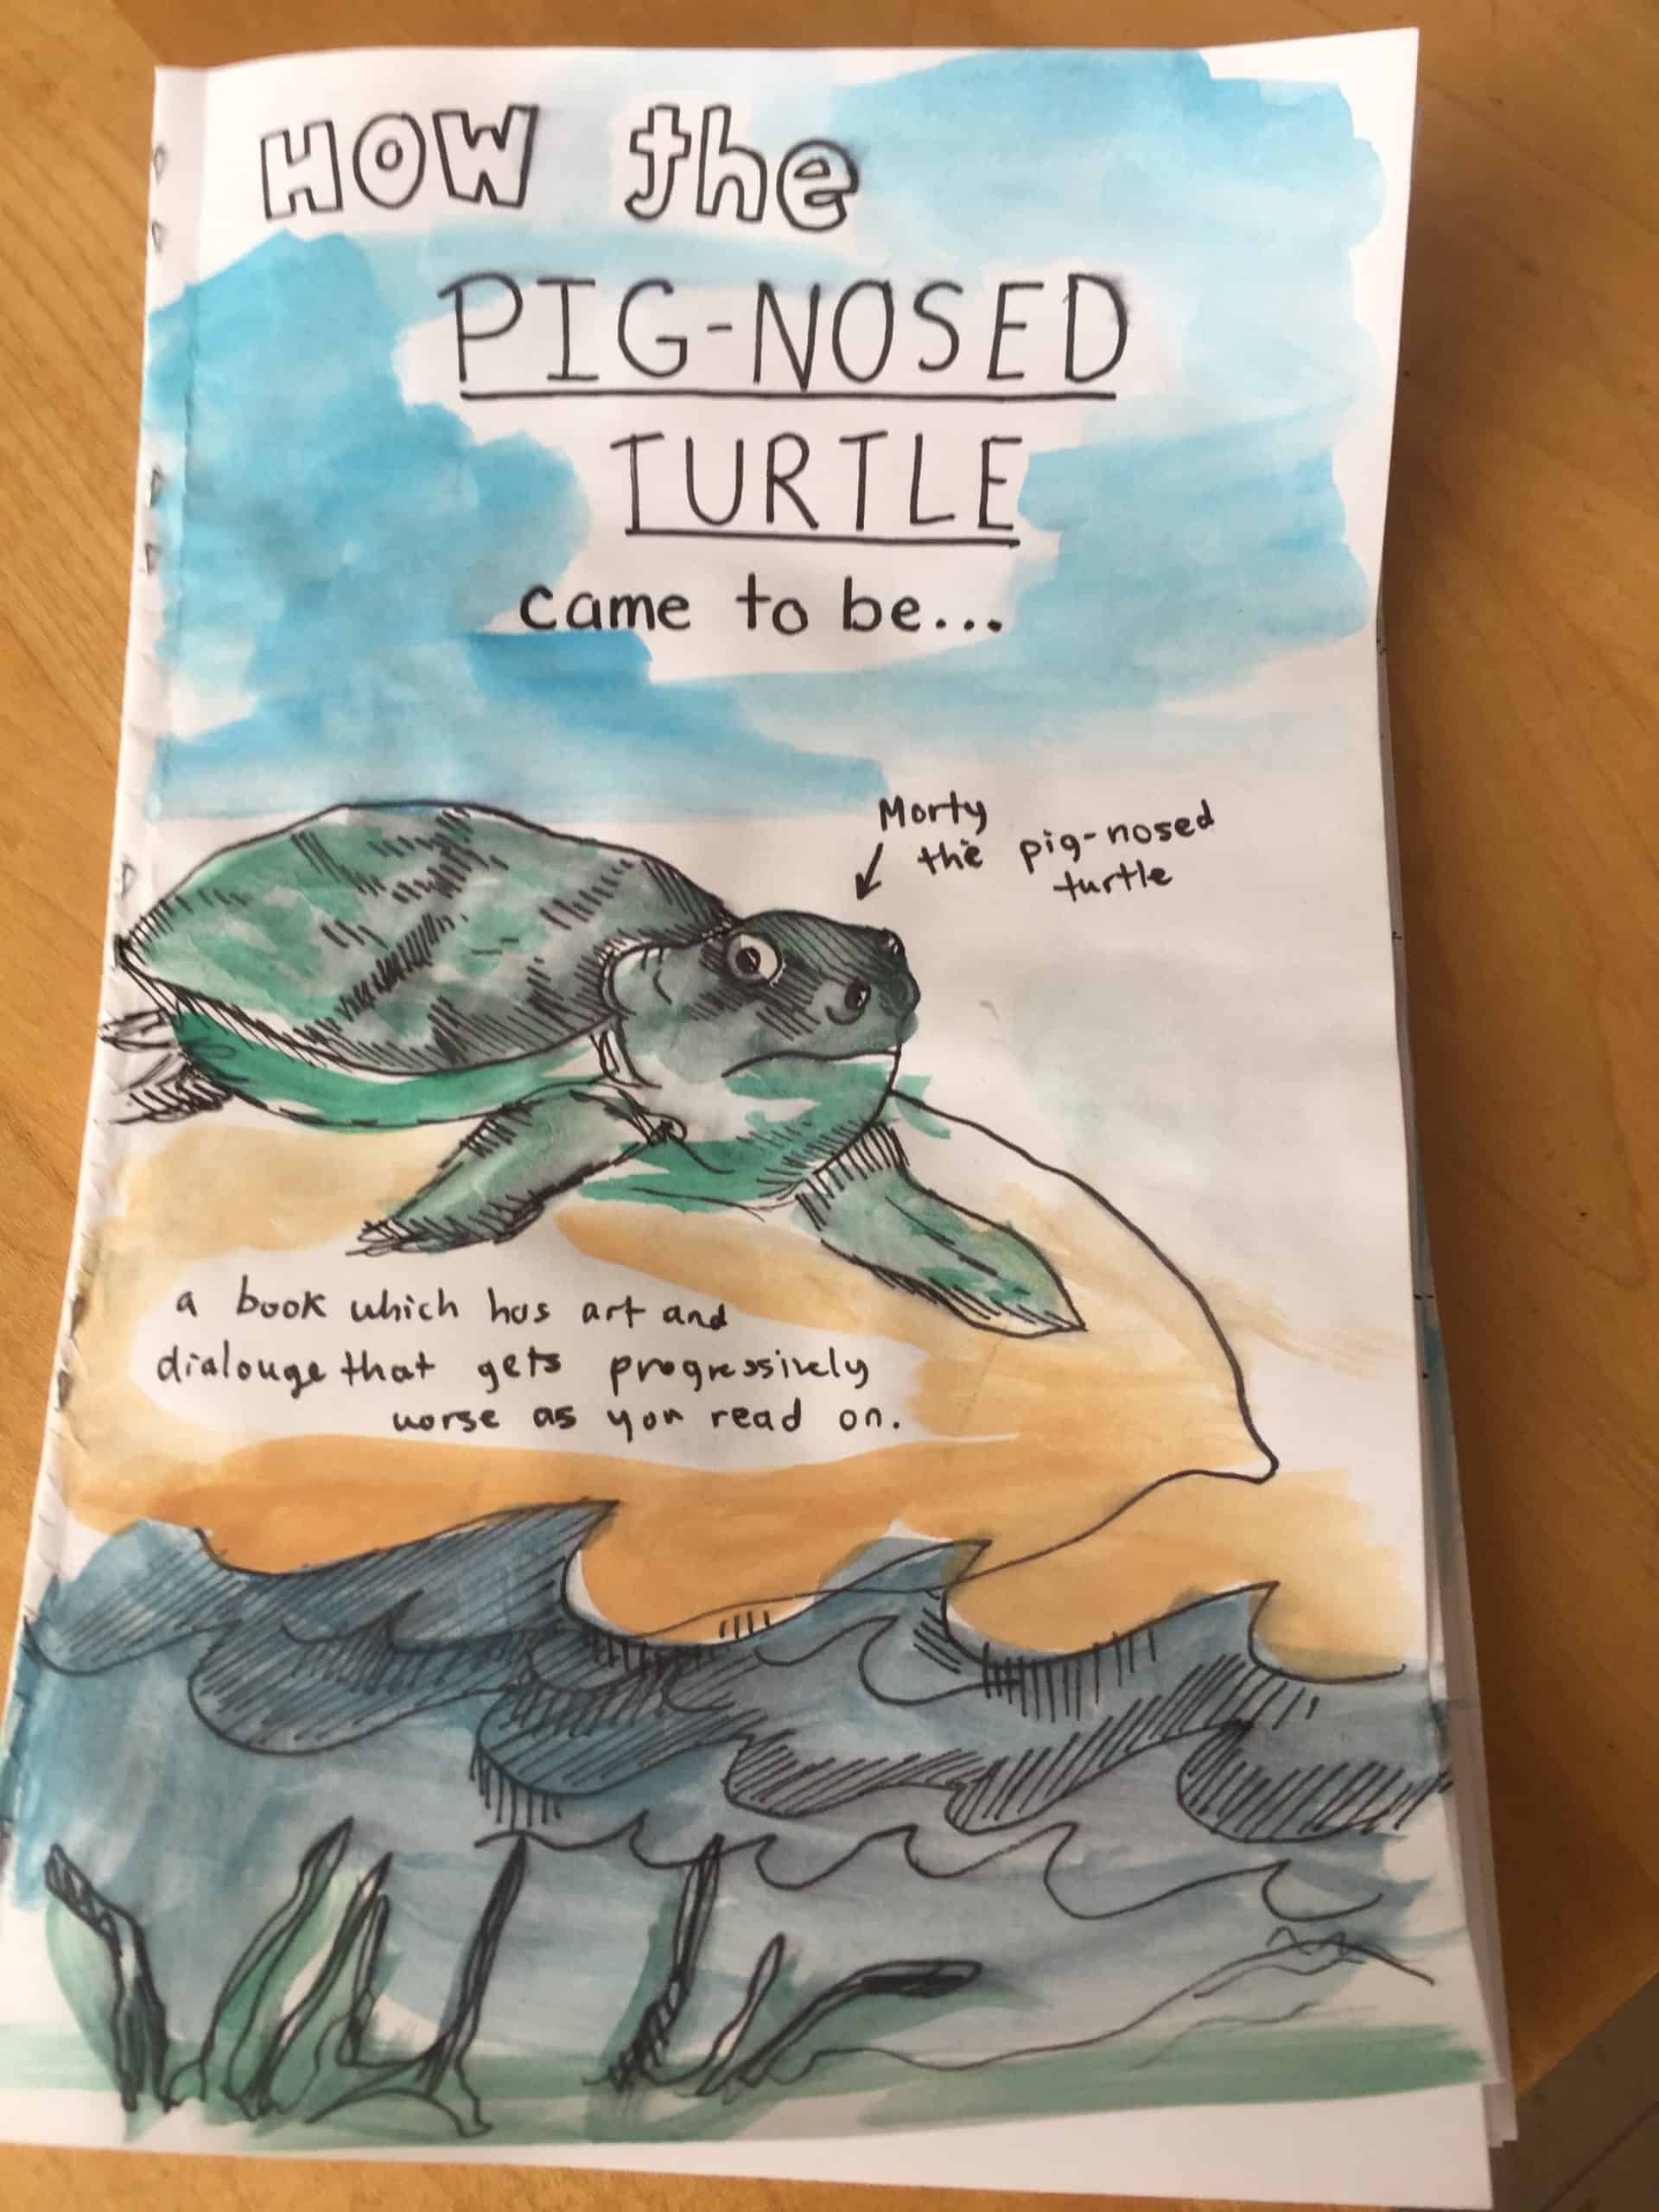 HOW the
PIG-NOSED
TURTLE
came to be...
Morty
the pig-nosed
turtle
a book which has art and
dialouge that gets progressively
worse as you read on.